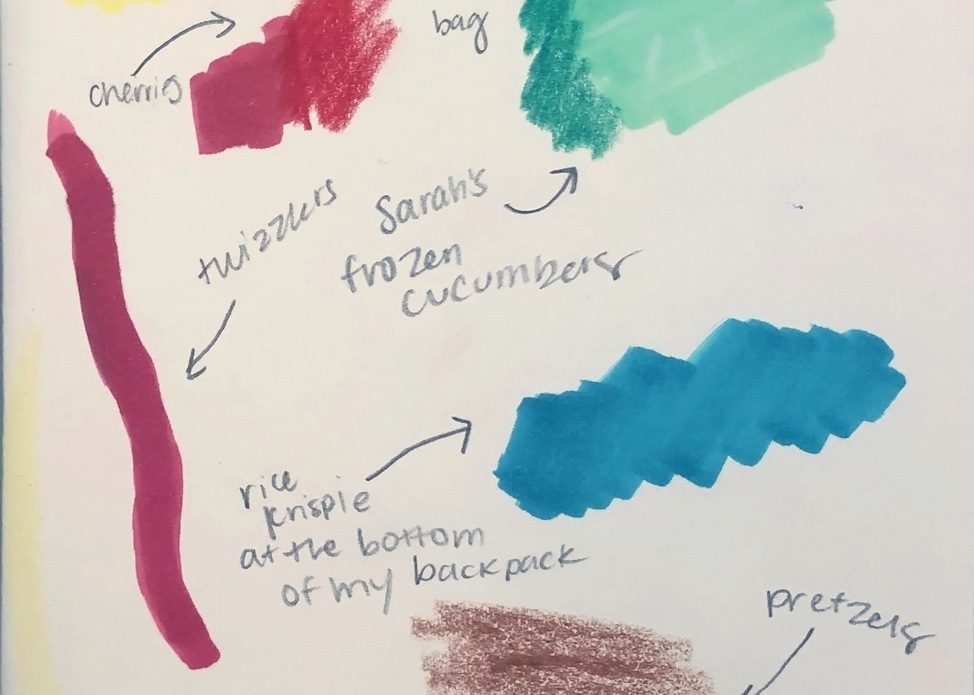 bag
cherries
twizzlers
Sarah's
frozen
cucumbers
rice
krispie
at the bottom
of my backpack
pretzels